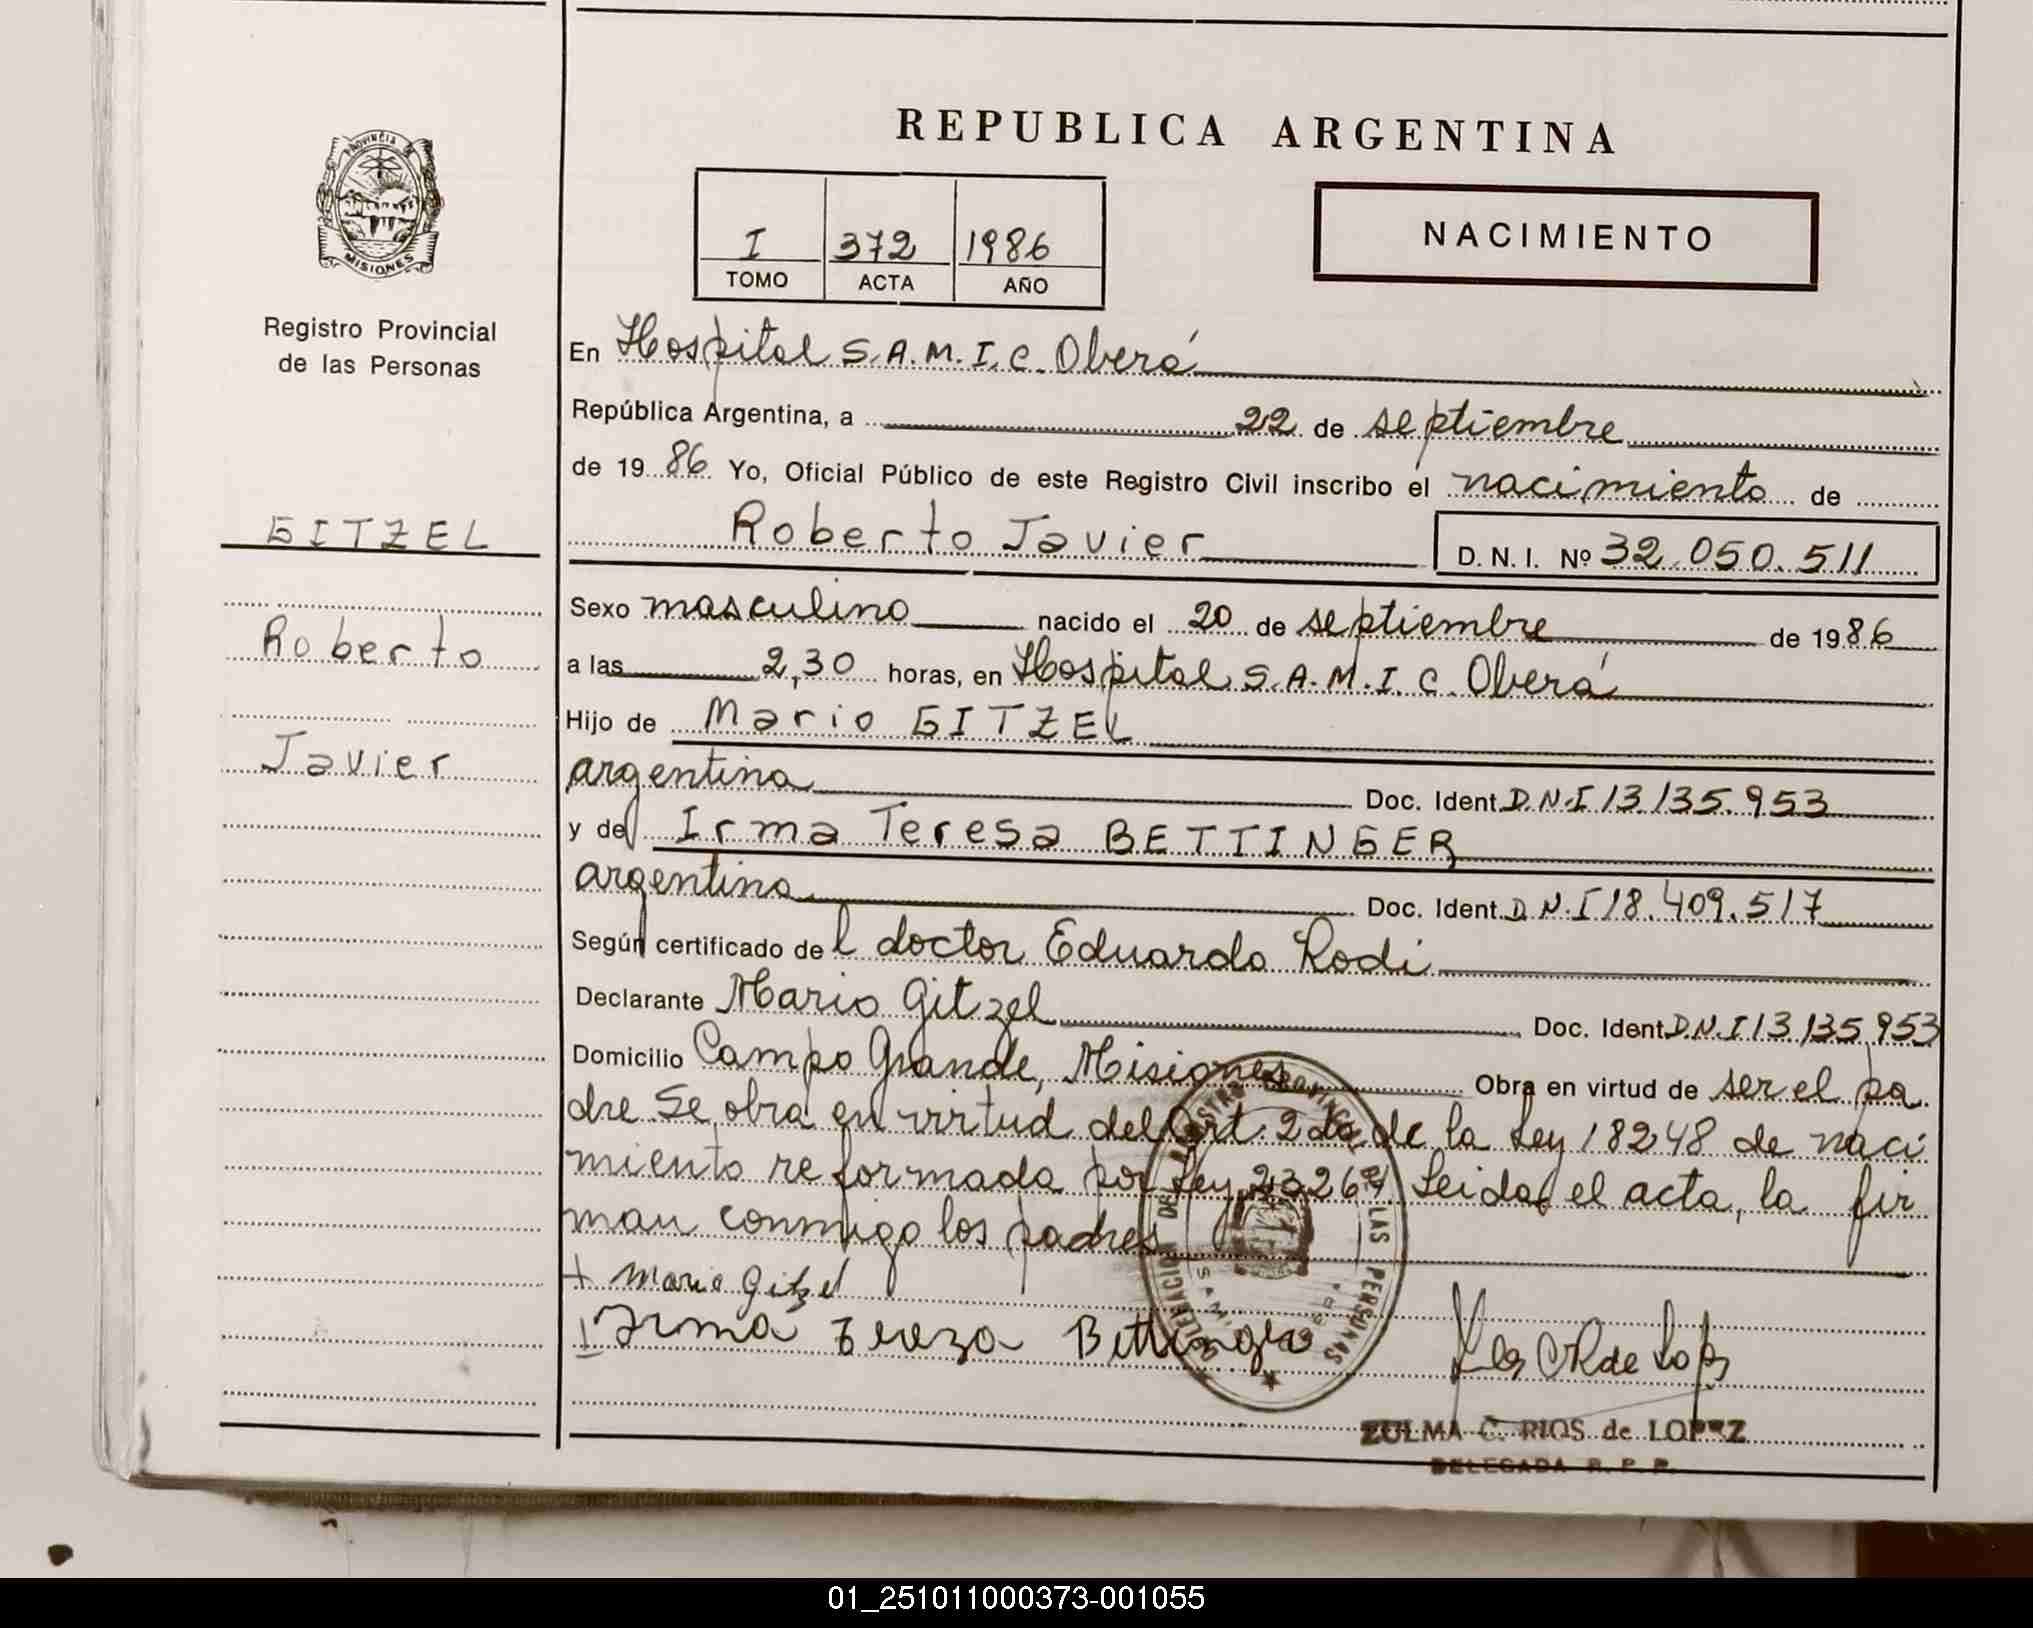 REPUBLICA ARGENTINA
PROVINCIA DE
MISIONES
Registro Provincial
de las Personas
I 372 1986
TOMO ACTA AÑO
NACIMIENTO
En Hospital S.A.M.I.C. Oberá
República Argentina, a 22 de septiembre
de 1986 Yo, Oficial Público de este Registro Civil inscribo el nacimiento de
GITZEL
Roberto Javier D.N.I. Nº 32.050.511
Sexo masculino nacido el 20 de septiembre de 1986
Roberto
a las 2,30 horas, en Hospital S.A.M.I.C. Oberá
Hijo de Mario GITZEL
Javier
argentina Doc. Ident. D.N.I 13.135.953
y de Irma Teresa BETTINGER
argentina Doc. Ident. D.N.I 18.409.517
Según certificado del doctor Eduardo Rodi
Declarante Mario Gitzel Doc. Ident. D.N.I 13.135.953
Domicilio Campo Grande, Misiones Obra en virtud de ser el pa
dre. Se obra en virtud del Art. 2do de la Ley 18248 de naci
miento reformada por Ley 23264 Leida el acta, la fir
man conmigo los padres
Mario Gitzel
Irma Tereza Bettinger
LAS PERSONAS
ZULMA C. RIOS de LOPEZ
DELEGADA R.P.P.
01_251011000373-001055